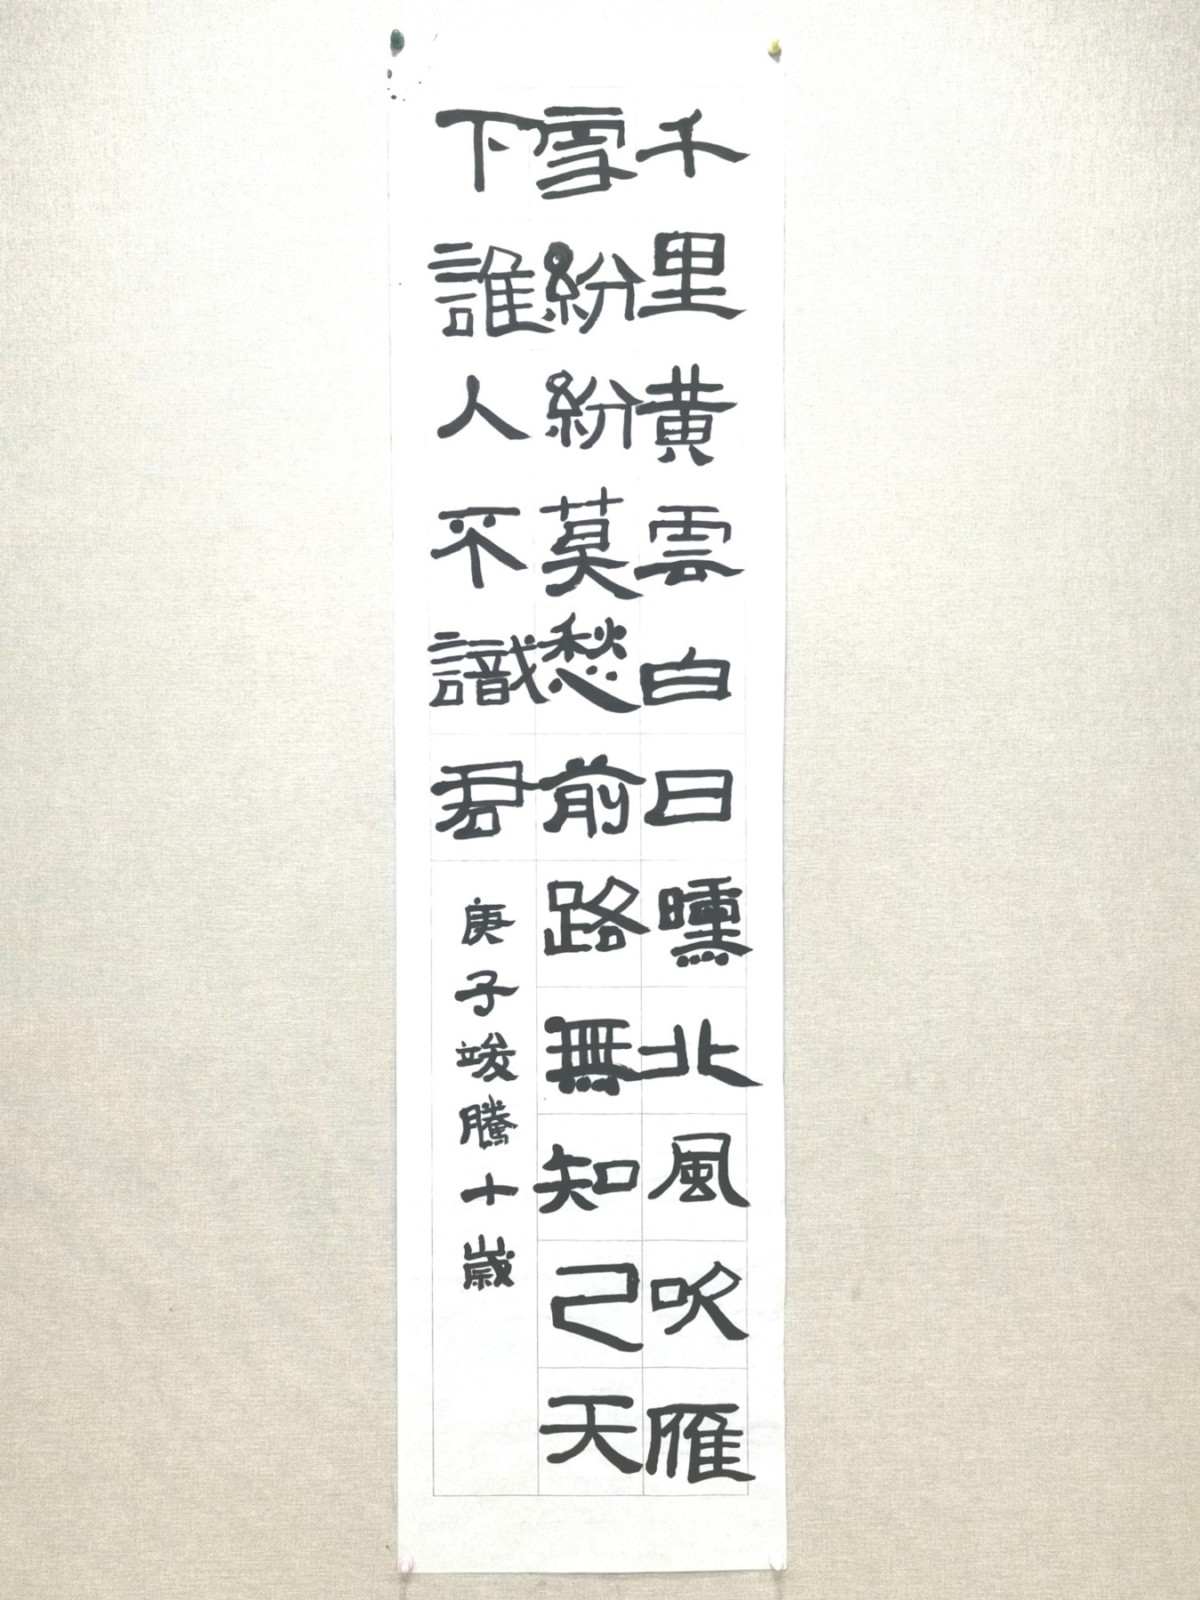 千里黄雲白日曛北風吹雁
雪紛紛莫愁前路無知己天
下誰人不識君
庚子竣騰十歲